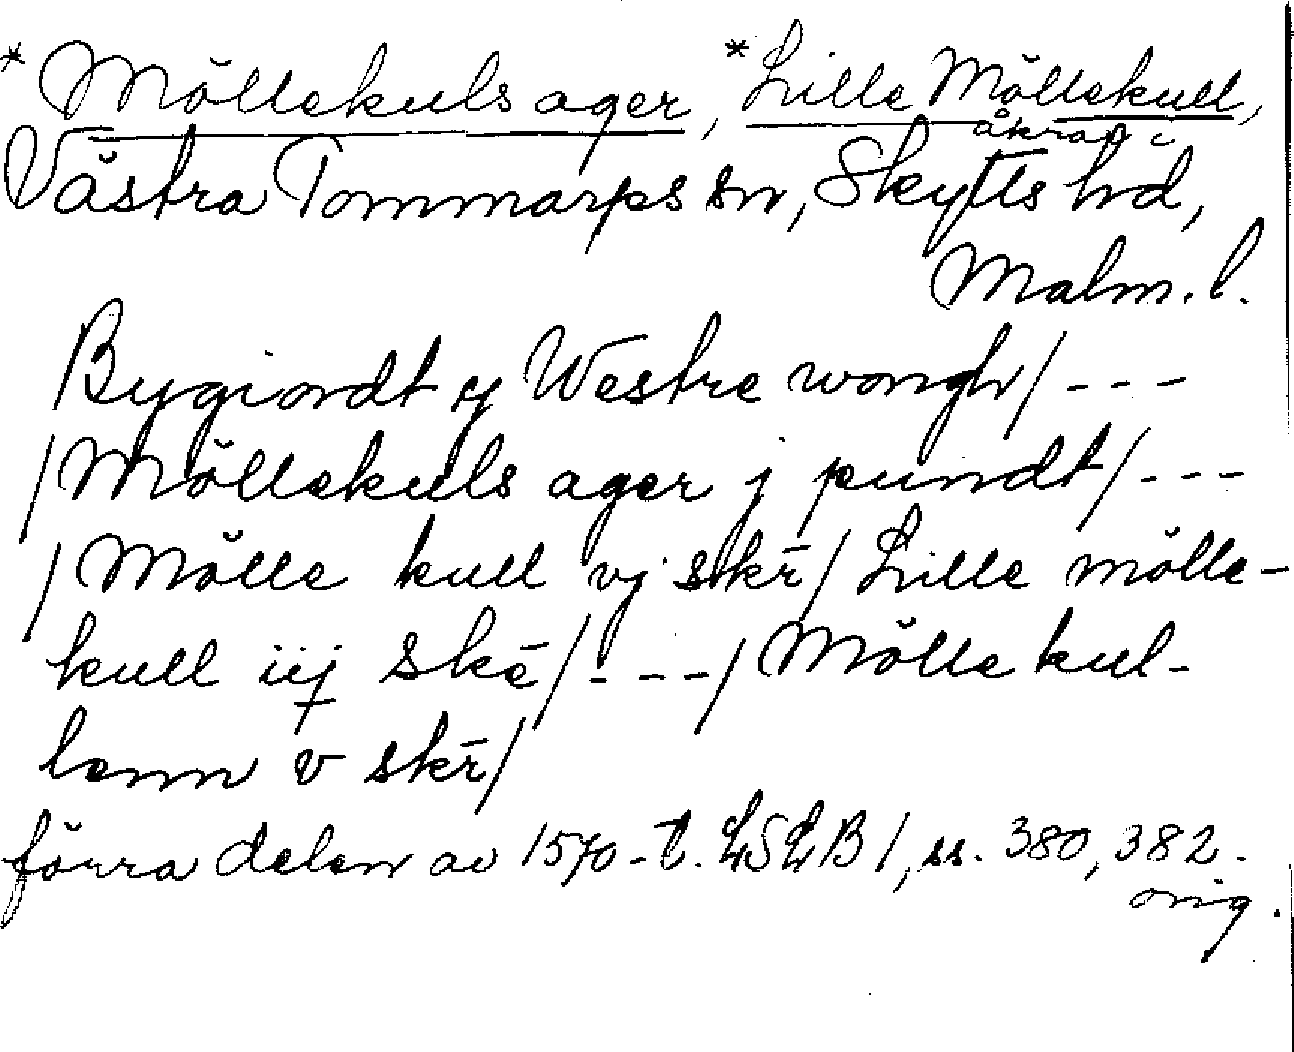 *Möllekuls ager, *Lille Möllekull,
åkrar i
Västra Tommarps sn, Skytts hd,
Malm. l.
Bygiordt y Westre wongh/ - - -
/Möllekuls ager j pundt/ - - -
/Mölle kull vj skr̄/ Lille mölle-
kull iij skē/ - - -/ Mölle kul-
lenn v skr̄/
förra delen av 1570-t. LSLB 1, ss. 380, 382.
orig.